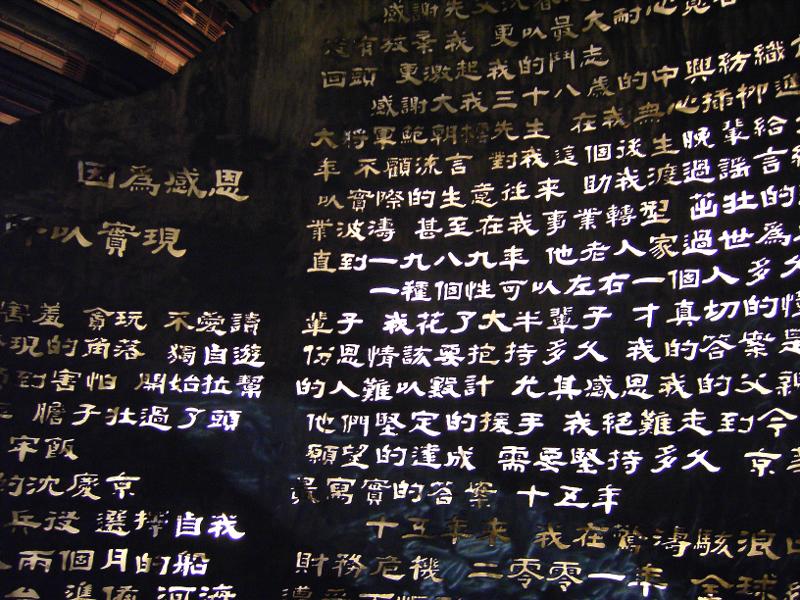 因為感恩
所以實現
害羞 貪玩 不愛讀
現的角落 獨自遊
到害怕 開始拉幫
膽子壯過了頭
牢飯
的沈慶京
兵役 選擇自我
兩個月的船
準備 河海
感謝先父沈
沒有放棄我 更以最大耐心
回頭 更激起我的鬥志
感謝大我三十八歲的中興紡織
大將軍鮑朝橒先生 在我無心插柳進
年 不顧流言 對我這個後生晚輩給
以實際的生意往來 助我渡過謠言
業波濤 甚至在我事業轉型 茁壯的
直到一九八九年 他老人家過世為
一種個性可以左右一個人多久
輩子 我花了大半輩子 才真切的
份恩情該要抱持多久 我的答案是
的人難以數計 尤其感恩我的父親
他們堅定的援手 我絕難走到今
願望的達成 需要堅持多久 京華
最寫實的答案 十五年
十五年來 我在驚濤駭浪
財務危機 二零零一年 全球